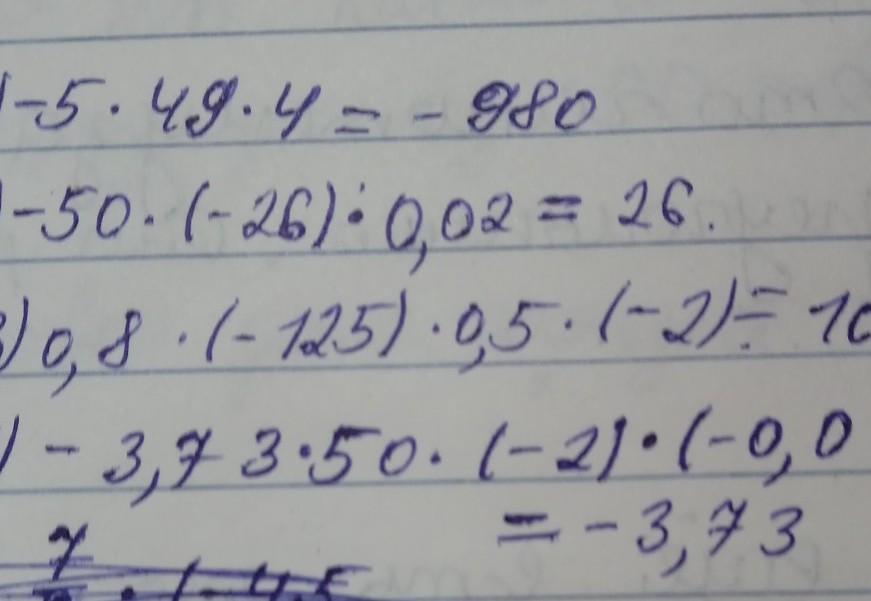 ) -5 · 49 · 4 = - 980
) -50 · (-26) · 0,02 = 26.
3) 0,8 · (-125) · 0,5 · (-2) = 10
) - 3,73 · 50 · (-2) · (-0,0
= - 3,73
7
· (-4,5